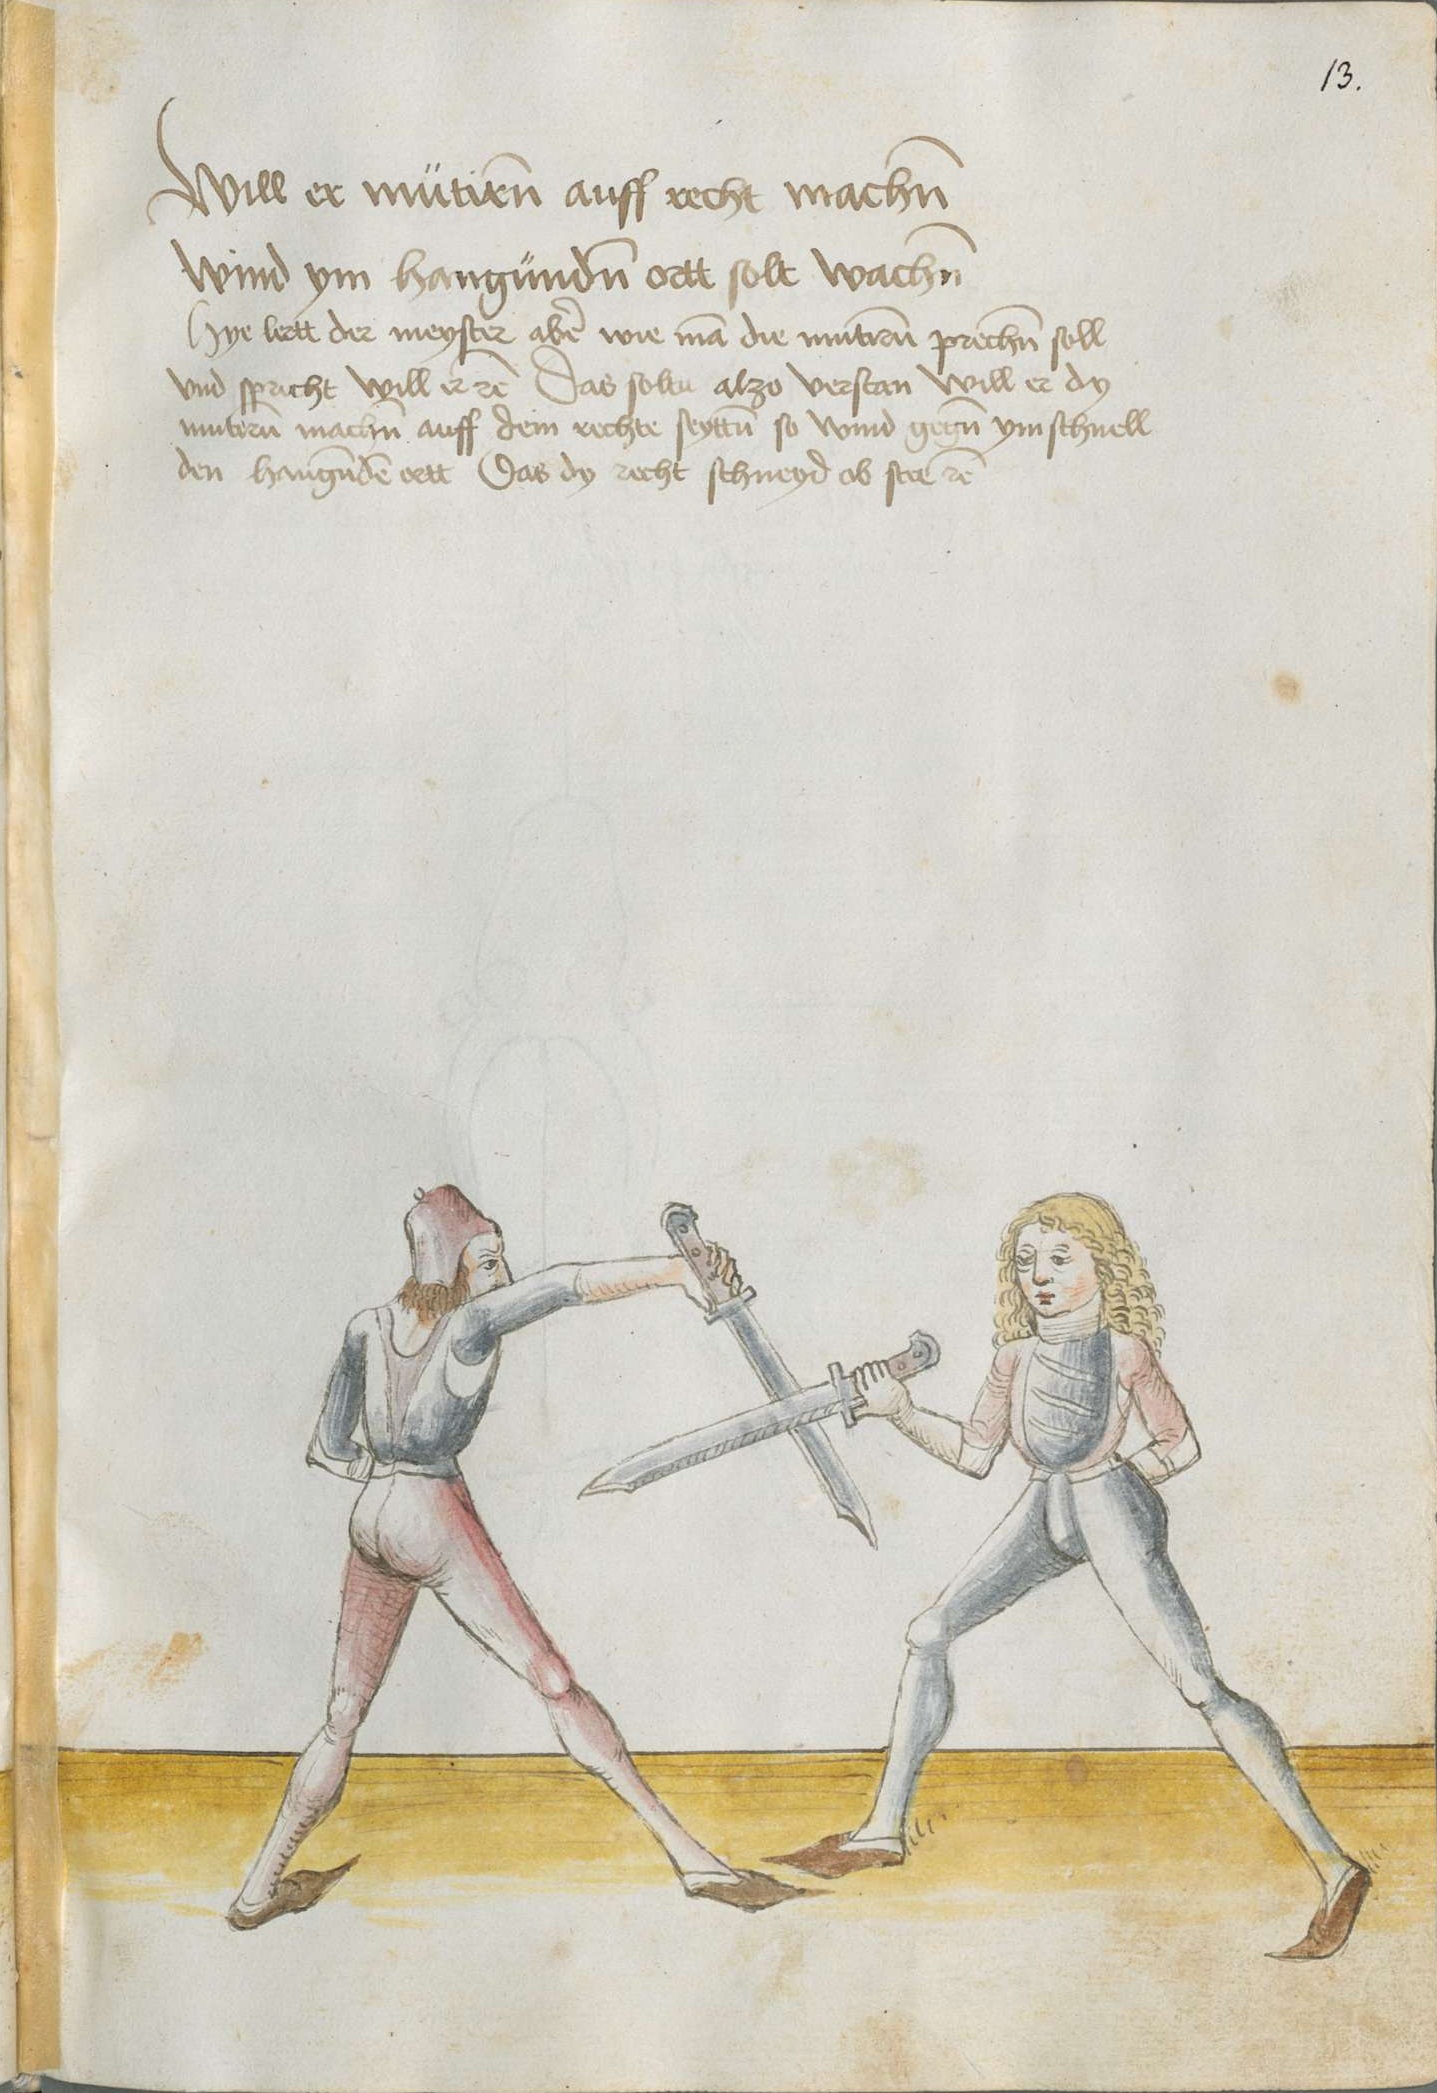 13.
Will er mütirn̄ auff recht machn̄
wind ym hangündn̄ ortt solt wachn̄
Hye lertt der meyster abē wie mā die mutirn̄ prechn̄ soll
vnd spricht Will er rē Das soltu alzo verstan Will er dy
mutern̄ machn̄ auff dein rechte seyttn̄ so wind gegn̄ ym schnell
den hangn̄dē ortt Das dy recht schneyd ob stee rē